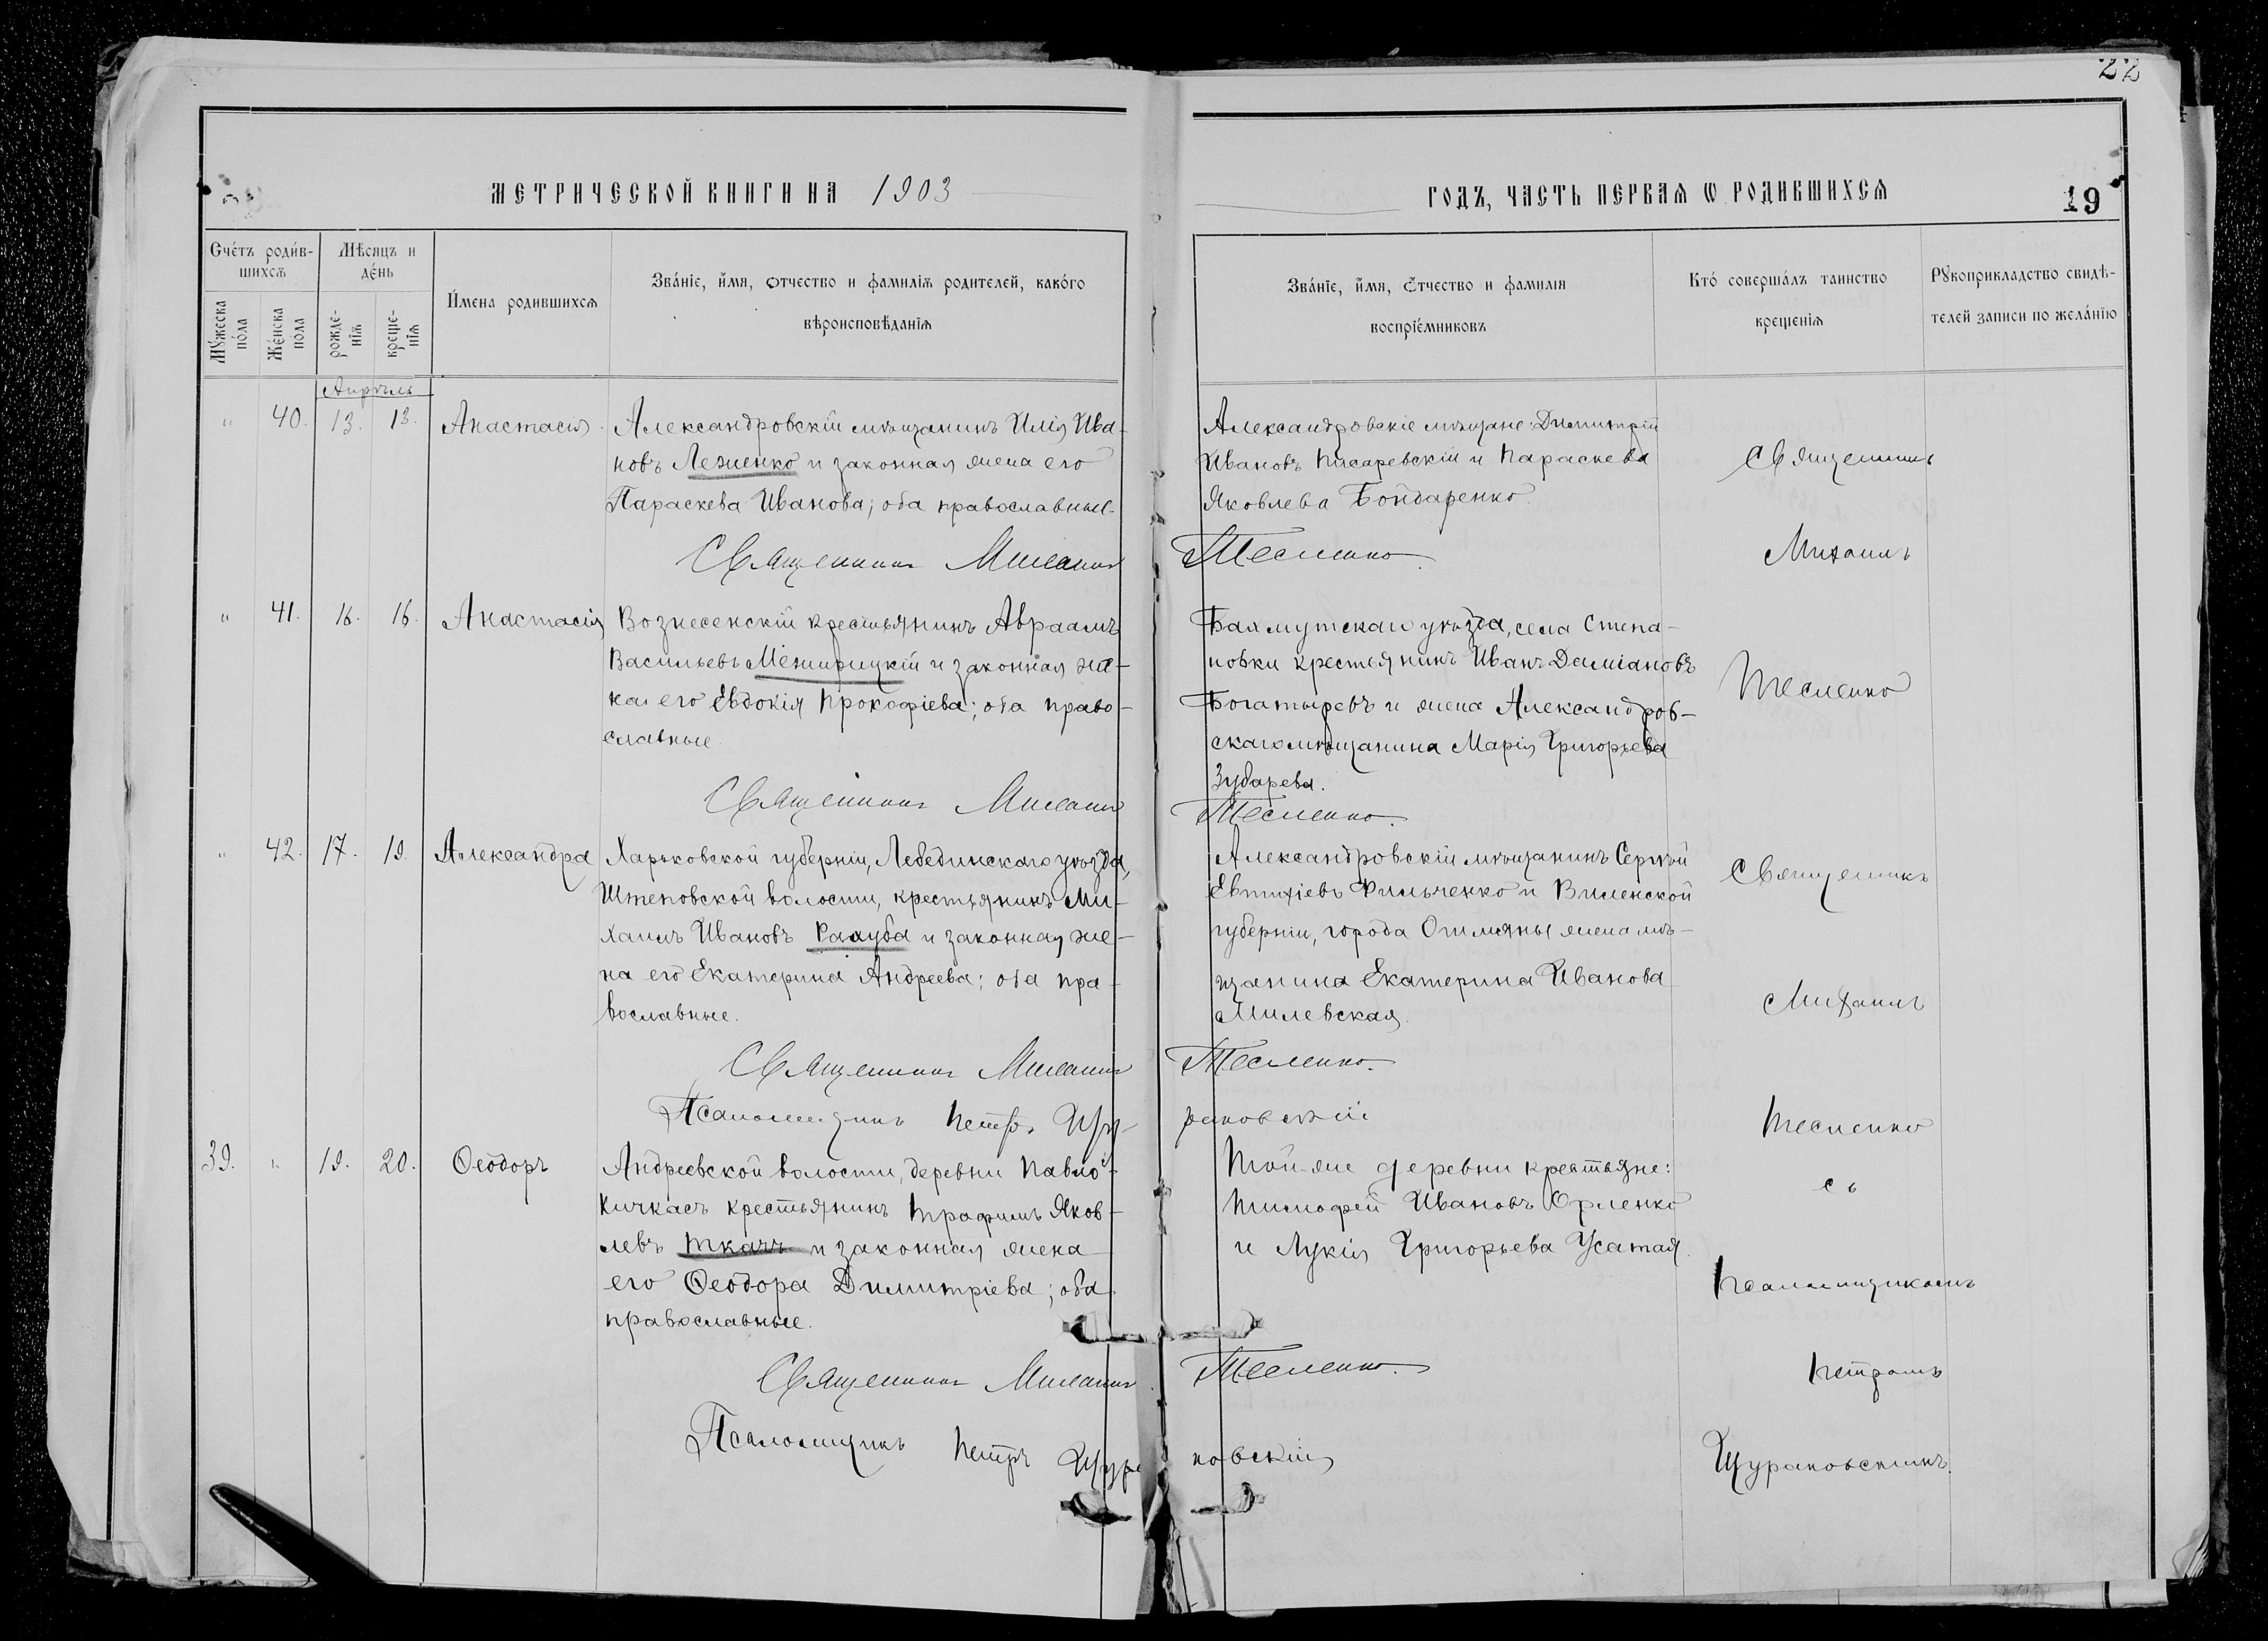 22
МЕТРИЧЕСКОЙ КНИГИ НА 1903
ГОДЪ, ЧАСТЬ ПЕРВАЯ Ѡ РОДИВШИХСЯ
19
Счетъ родив-
шихся
Мѣсяцъ и
день
Имена родившихся
Званіе, имя, отчество и фамилія родителей, какого
вѣроисповѣданія
Мужеска
пола
Женска
пола
рожде-
нія
креще-
нія
Званіе, имя, отчество и фамилія
воспріемниковъ
Кто совершалъ таинство
крещенія
Рукоприкладство свидѣ-
телей записи по желанію
Апрѣль
" 40. 13. 13. Анастасія
Александровскій мѣщанинъ Илія Ива-
новъ Леженко и законная жена его
Параскева Иванова; оба православные.
Священникъ Михаилъ Тесленко.
Александровскіе мѣщане: Димитрій
Ивановъ Писаревскій и Параскева
Яковлева Бондаренко
Священникъ
Михаилъ
Тесленко
" 41. 16. 16. Анастасія
Вознесенскій крестьянинъ Авраамъ
Васильевъ Межирицкій и законная же-
на его Евдокія Прокофіева; оба право-
славные.
Священникъ Михаилъ Тесленко.
Бахмутскаго уѣзда, села Степа-
новки крестьянинъ Иванъ Даміановъ
Богатыревъ и жена Александров-
скаго мѣщанина Марія Григорьева
Зубарева.
" 42. 17. 19. Александра
Харьковской губерніи, Лебединскаго уѣзда,
Штеповской волости, крестьянинъ Ми-
хаилъ Ивановъ Рахуба и законная же-
на его Екатерина Андреева; оба пра-
вославные.
Священникъ Михаилъ Тесленко.
Псаломщикъ Петръ Щураковскій
Александровскій мѣщанинъ Сергѣй
Евтихіевъ Фильченко и Виленской
губерніи, города Ошмяны жена мѣ-
щанина Екатерина Иванова
Милевская.
Священникъ
Михаилъ
Тесленко
съ
Псаломщикомъ
Петромъ
Щураковскимъ.
39. " 19. 20. Ѳеодоръ
Андреевской волости, деревни Павло-
Кичкасъ крестьянинъ Трофимъ Яков-
левъ Ткачъ и законная жена
его Ѳеодора Димитріева; оба
православные.
Священникъ Михаилъ Тесленко.
Псаломщикъ Петръ Щураковскій
Той-же деревни крестьяне:
Тимофей Ивановъ Орленко
и Лукія Григорьева Усатая.